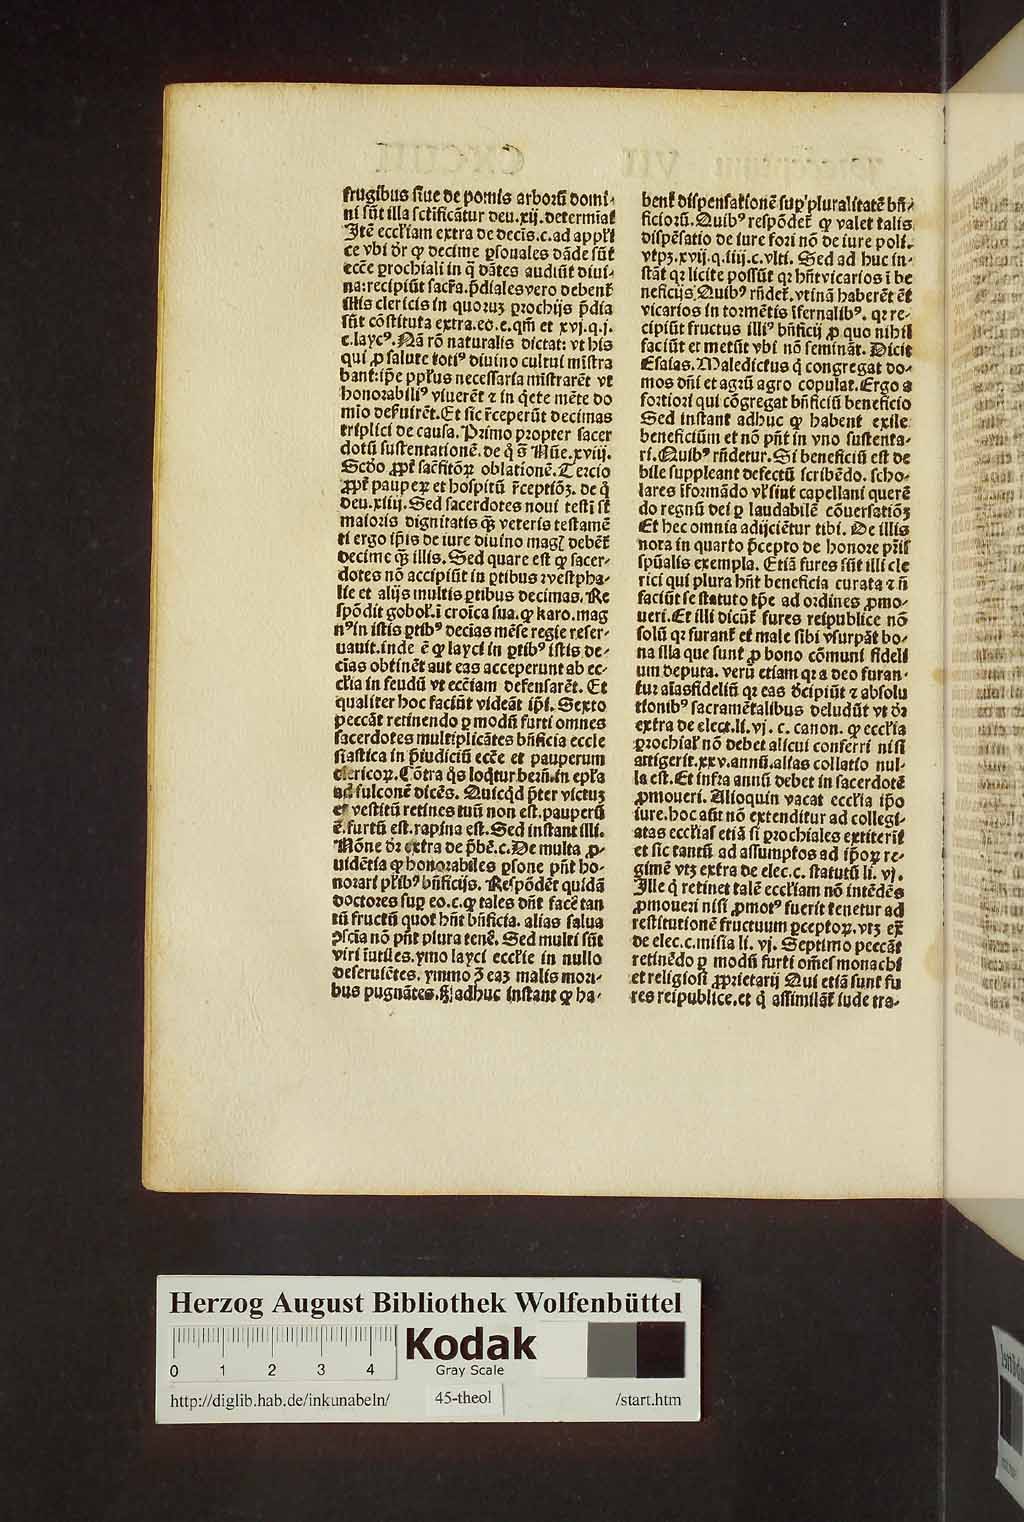 frugibus siue de pomis arborū domi-
ni sūt illa sctificātur deu.xij.determiāt
Itē eccl'iam extra de decīs.c.ad appl'i
ce vbi dr̄ ꝙ decime ꝑsonales dāde sūt
ecc̄e ꝑrochiali in q̄ dātes audiūt diui-
na:recipiūt sacr̄a.p̄diales vero debent̄
istis clericis in quoruȝ ꝑrochijs p̄dia
sūt cōstituta extra.eo.e.qm̄ et xvj.q.j.
c.laycꝰ.Nā rō naturalis dictat: vt his
qui ꝓ salute totiꝰ diuino cultui mīstra
bant:ip̄e pplꝰus necessaria mīstrarēt vt
honorabiliꝰ viuerēt ⁊ in q̄ete mēte do
mio deẜuirēt.Et sic r̄ceperūt decimas
triplici de causa.Primo propter sacer
dotū sustentationē.de q̄ s̄ Nūe.xviij.
Scd̄o ꝓpt̄ sac̄fitōꝝ oblationē.Tercio
ꝓpt̄ pauꝑeꝝ et hospitū r̄ceptiōȝ. de q̄
deu.xiiij.Sed sacerdotes noui testī st̄
maioris dignitatis q̄ȝ veteris testamē
ti ergo ip̄is de iure diuino magꝭ debēt̄
decime q̄ȝ illis. Sed quare est ꝙ sacer-
dotes nō accipiūt in ꝑtibus ꝛvestpha-
lie et alijs multis ꝑtibus decimas. Re
spōdit gobol'.ī croīca sua.ꝙ karo.mag
nꝰin istis ꝑtibꝰ deciās mēse regie reser-
uauit.inde ē ꝙ layci in ꝑtibꝰ istis de-
cīas obtinēt aut eas acceperunt ab ec-
cl'ia in feudū vt ecc̄iam defensarēt. Et
qualiter hoc faciūt videāt ip̄i. Sexto
peccāt retinendo ꝑ modū furti omnes
sacerdotes multiplicātes bn̄ficia eccle
siastica in p̄iudiciū ecc̄e et pauperum
clericoꝝ. Cōtra q̄s loq̄tur berñ.in epl'a
ad fulconē dicēs. Quicq̄d p̄ter victuȝ
et vestitū retines tuū non est.pauperū
ē.furtū est.rapina est. Sed instant illi.
Nōne dr̄ extra de p̄bē.c.De multa ꝓ-
uidētia ꝙ honorabiles ꝑsone pn̄t ho-
norari pl'ibꝰ bn̄ficijs. Respōdēt quidā
doctores suꝑ eo.c.ꝙ tales dn̄t facē tan
tū fructū quot hn̄t bn̄ficia. alias salua
ꝯscīa nō pn̄t plura tene᷑. Sed multi sūt
viri īutiles.ymo layci eccl'ie in nullo
deseruiētes. ymmo ꝫ eaȝ malis mori-
bus pugnātes.Sꝫ adhuc instant ꝙ ha-
bent̄ dispensationē suꝑ pluralitatē bn̄-
ficiorū.Quibꝰ respōdet̄ ꝙ valet talis
dispēsatio de iure fori nō de iure poli.
vtpȝ.xvij.q.iiij.c.vlti. Sed ad huc in-
stāt qꝛ licite possūt qꝛ hn̄t vicarios ī be
neficijs.Quibꝰ rn̄det̄.vtinā haberēt ēt
vicarios in tormētis īfernalibꝰ. qꝛ re-
cipiūt fructus illiꝰ bn̄ficij ꝓ quo nihil
faciūt et metūt vbi nō seminān̄t. Dicit
Esaias. Maledictus q̄ congregat do-
mos dn̄i et agrū agro copulat.Ergo a
fortiori qui cōgregat bn̄ficiū beneficio
Sed instant adhuc ꝙ habent exile
beneficiūm et nō pn̄t in vno sustenta-
ri.Quibꝰ rn̄detur. Si beneficiū est de
bile suppleant defectū scribēdo. scho-
lares īformādo vl' sint capellani querē
do regnū dei ꝑ laudabilē cōuersatiōȝ
Et hec omnia adijciētur tibi. De illis
nota in quarto p̄cepto de honore pr̄is
spūalis exempla. Etiā fures sūt illi cle
rici qui plura hn̄t beneficia curata ⁊ n̄
faciūt se statuto tp̄e ad ordines ꝓmo-
ueri.Et illi dicūt̄ fures reipublice nō
solū qꝛ furant̄ et male sibi vsurpāt bo-
na illa que sunt ꝓ bono cōmuni fideli
um deputa. verū etiam qꝛ a deo furan-
tur aīas fideliū qꝛ eas d̄cipiūt ⁊ absolu
tionibꝰ sacramētalibus deludūt vt dr̄
extra de elect.li.vj. c. canon. ꝙ eccl'ia
ꝑrochial' nō debet alicui conferri nisi
attigerit.xxv.annū.alias collatio nul-
la est.Et infra annū debet in sacerdotē
ꝓmoueri. Alioquin vacat eccl'ia ip̄o
iure.hoc aūt nō extenditur ad collegi-
atas eccl'ias etiā si ꝑrochiales extiterīt
et sic tantū ad assumptos ad ip̄oꝝ re-
gimē vtȝ extra de elec.c. statutū li. vj.
Ille q̄ retinet talē eccl'iam nō intēdēs
ꝓmoueri nisi ꝓmotꝰ fuerit tenetur ad
restitutionē fructuum ꝑceptoꝝ.vtȝ ex̄
de elec.c.misia li. vj. Septimo peccāt
retinēdo ꝑ modū furti om̄es monachi
et religiosi ꝓprietarij Qui etiā sunt fu
res reipublice.et q̄ assimilāt̄ iude tra-
Herzog August Bibliothek Wolfenbüttel
0 1 2 3 4
Kodak
Gray Scale
http://diglib.hab.de/inkunabeln/ 45-theol /start.htm